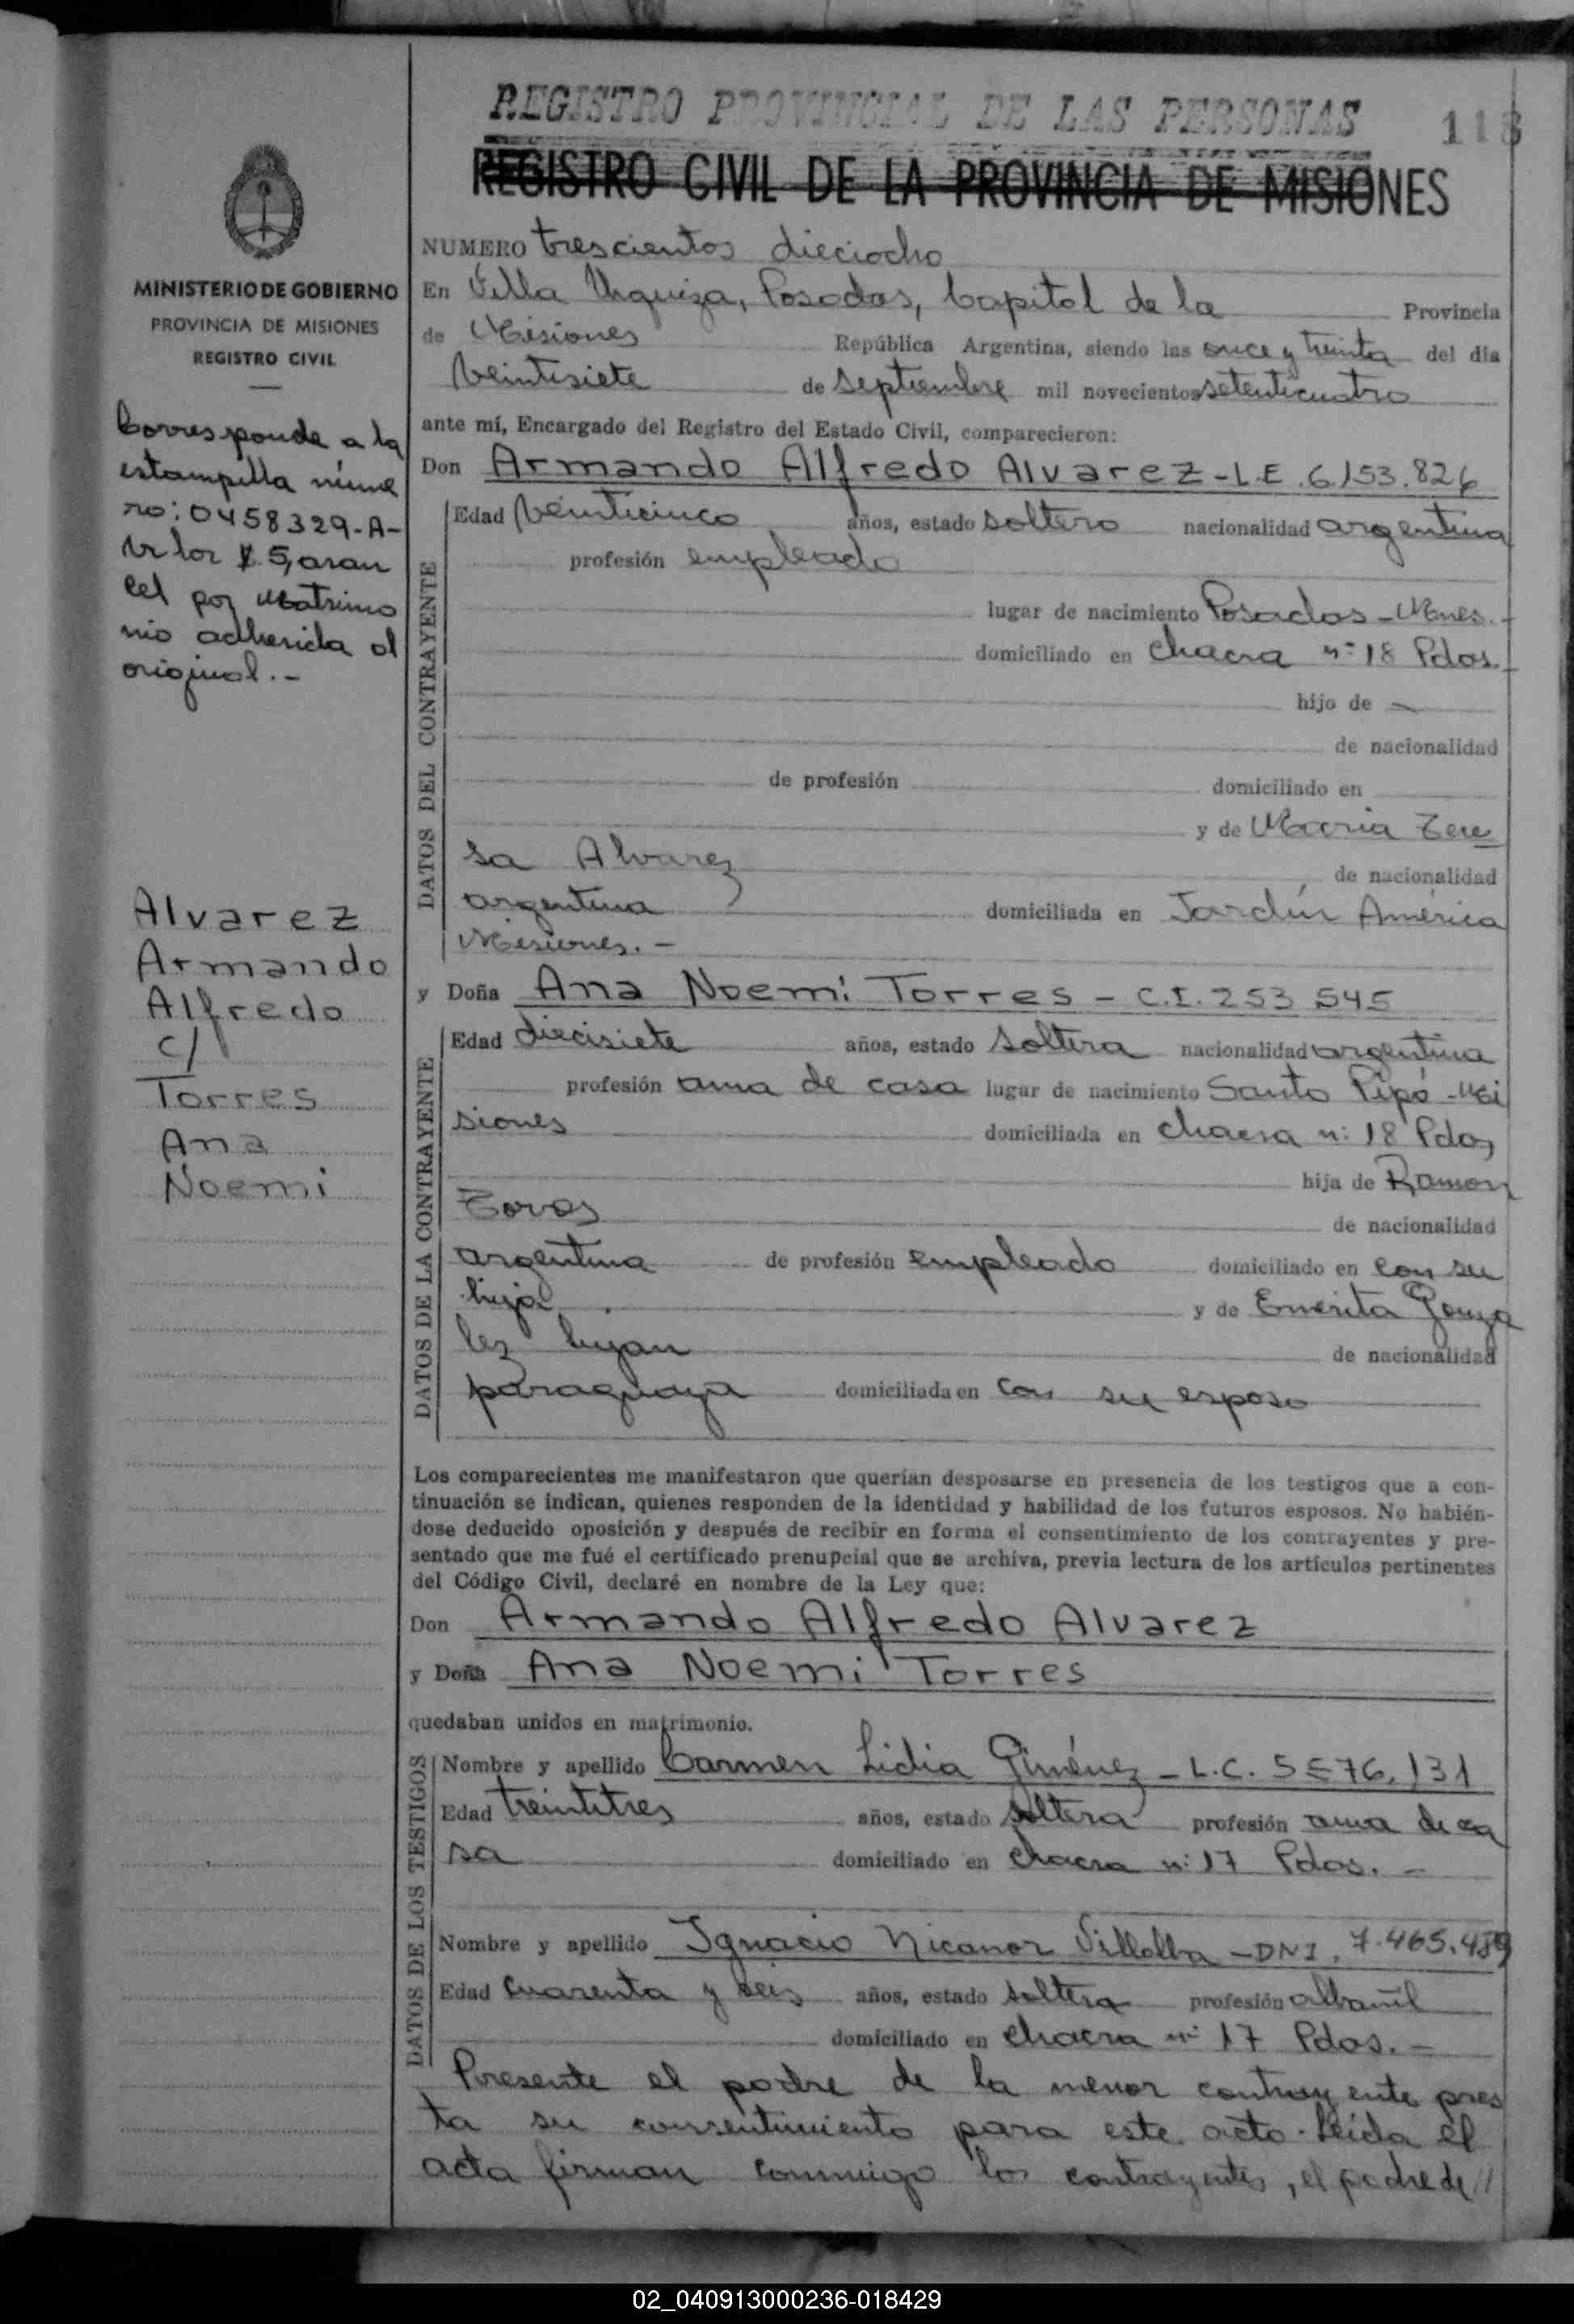 REGISTRO PROVINCIAL DE LAS PERSONAS
118
REGISTRO CIVIL DE LA PROVINCIA DE MISIONES
MINISTERIO DE GOBIERNO
PROVINCIA DE MISIONES
REGISTRO CIVIL
Corresponde a la
estampilla núme
ro: 0458329-A-
Valor $ 5, aran
cel por Matrimo
nio adherida al
original.-
Alvarez
Armando
Alfredo
c/
Torres
Ana
Noemi
NUMERO trescientos dieciocho
En Villa Urquiza, Posadas, Capital de la Provincia
de Misiones República Argentina, siendo las once y treinta del día
veintisiete de septiembre mil novecientos setenticuatro
ante mí, Encargado del Registro del Estado Civil, comparecieron:
Don Armando Alfredo Alvarez - L.E. 6.153.826
DATOS DEL CONTRAYENTE
Edad veinticinco años, estado soltero nacionalidad argentina
profesión empleado
lugar de nacimiento Posadas - Mnes.-
domiciliado en chacra nº 18 Pdas.-
hijo de -
de nacionalidad
de profesión domiciliado en
y de Maria Tere
sa Alvarez de nacionalidad
argentina domiciliada en Jardín América
Misiones.-
y Doña Ana Noemi Torres - C.I. 253.545
DATOS DE LA CONTRAYENTE
Edad diecisiete años, estado soltera nacionalidad argentina
profesión ama de casa lugar de nacimiento Santo Pipó - Mi
siones domiciliada en chacra n: 18 Pdas
hija de Ramon
Torres de nacionalidad
argentina de profesión empleado domiciliado en con su
hija y de Emerita Gonza
lez de nacionalidad
paraguaya domiciliada en con su esposo
Los comparecientes me manifestaron que querían desposarse en presencia de los testigos que a con-
tinuación se indican, quienes responden de la identidad y habilidad de los futuros esposos. No habién-
dose deducido oposición y después de recibir en forma el consentimiento de los contrayentes y pre-
sentado que me fué el certificado prenupcial que se archiva, previa lectura de los artículos pertinentes
del Código Civil, declaré en nombre de la Ley que:
Don Armando Alfredo Alvarez
y Doña Ana Noemi Torres
quedaban unidos en matrimonio.
DATOS DE LOS TESTIGOS
Nombre y apellido Carmen Lidia Giménez - L.C. 5.576.131
Edad treintitres años, estado soltera profesión ama de ca
sa domiciliado en chacra n: 17 Pdas.-
Nombre y apellido Ignacio Nicanor Villalba - DNI. 7.465.489
Edad cuarenta y seis años, estado soltero profesión albañil
domiciliado en chacra nº 17 Pdas.-
Presente el padre de la menor contrayente pres
ta su consentimiento para este acto. Leída el
acta firman conmigo los contrayentes, el padre de //
02_040913000236-018429